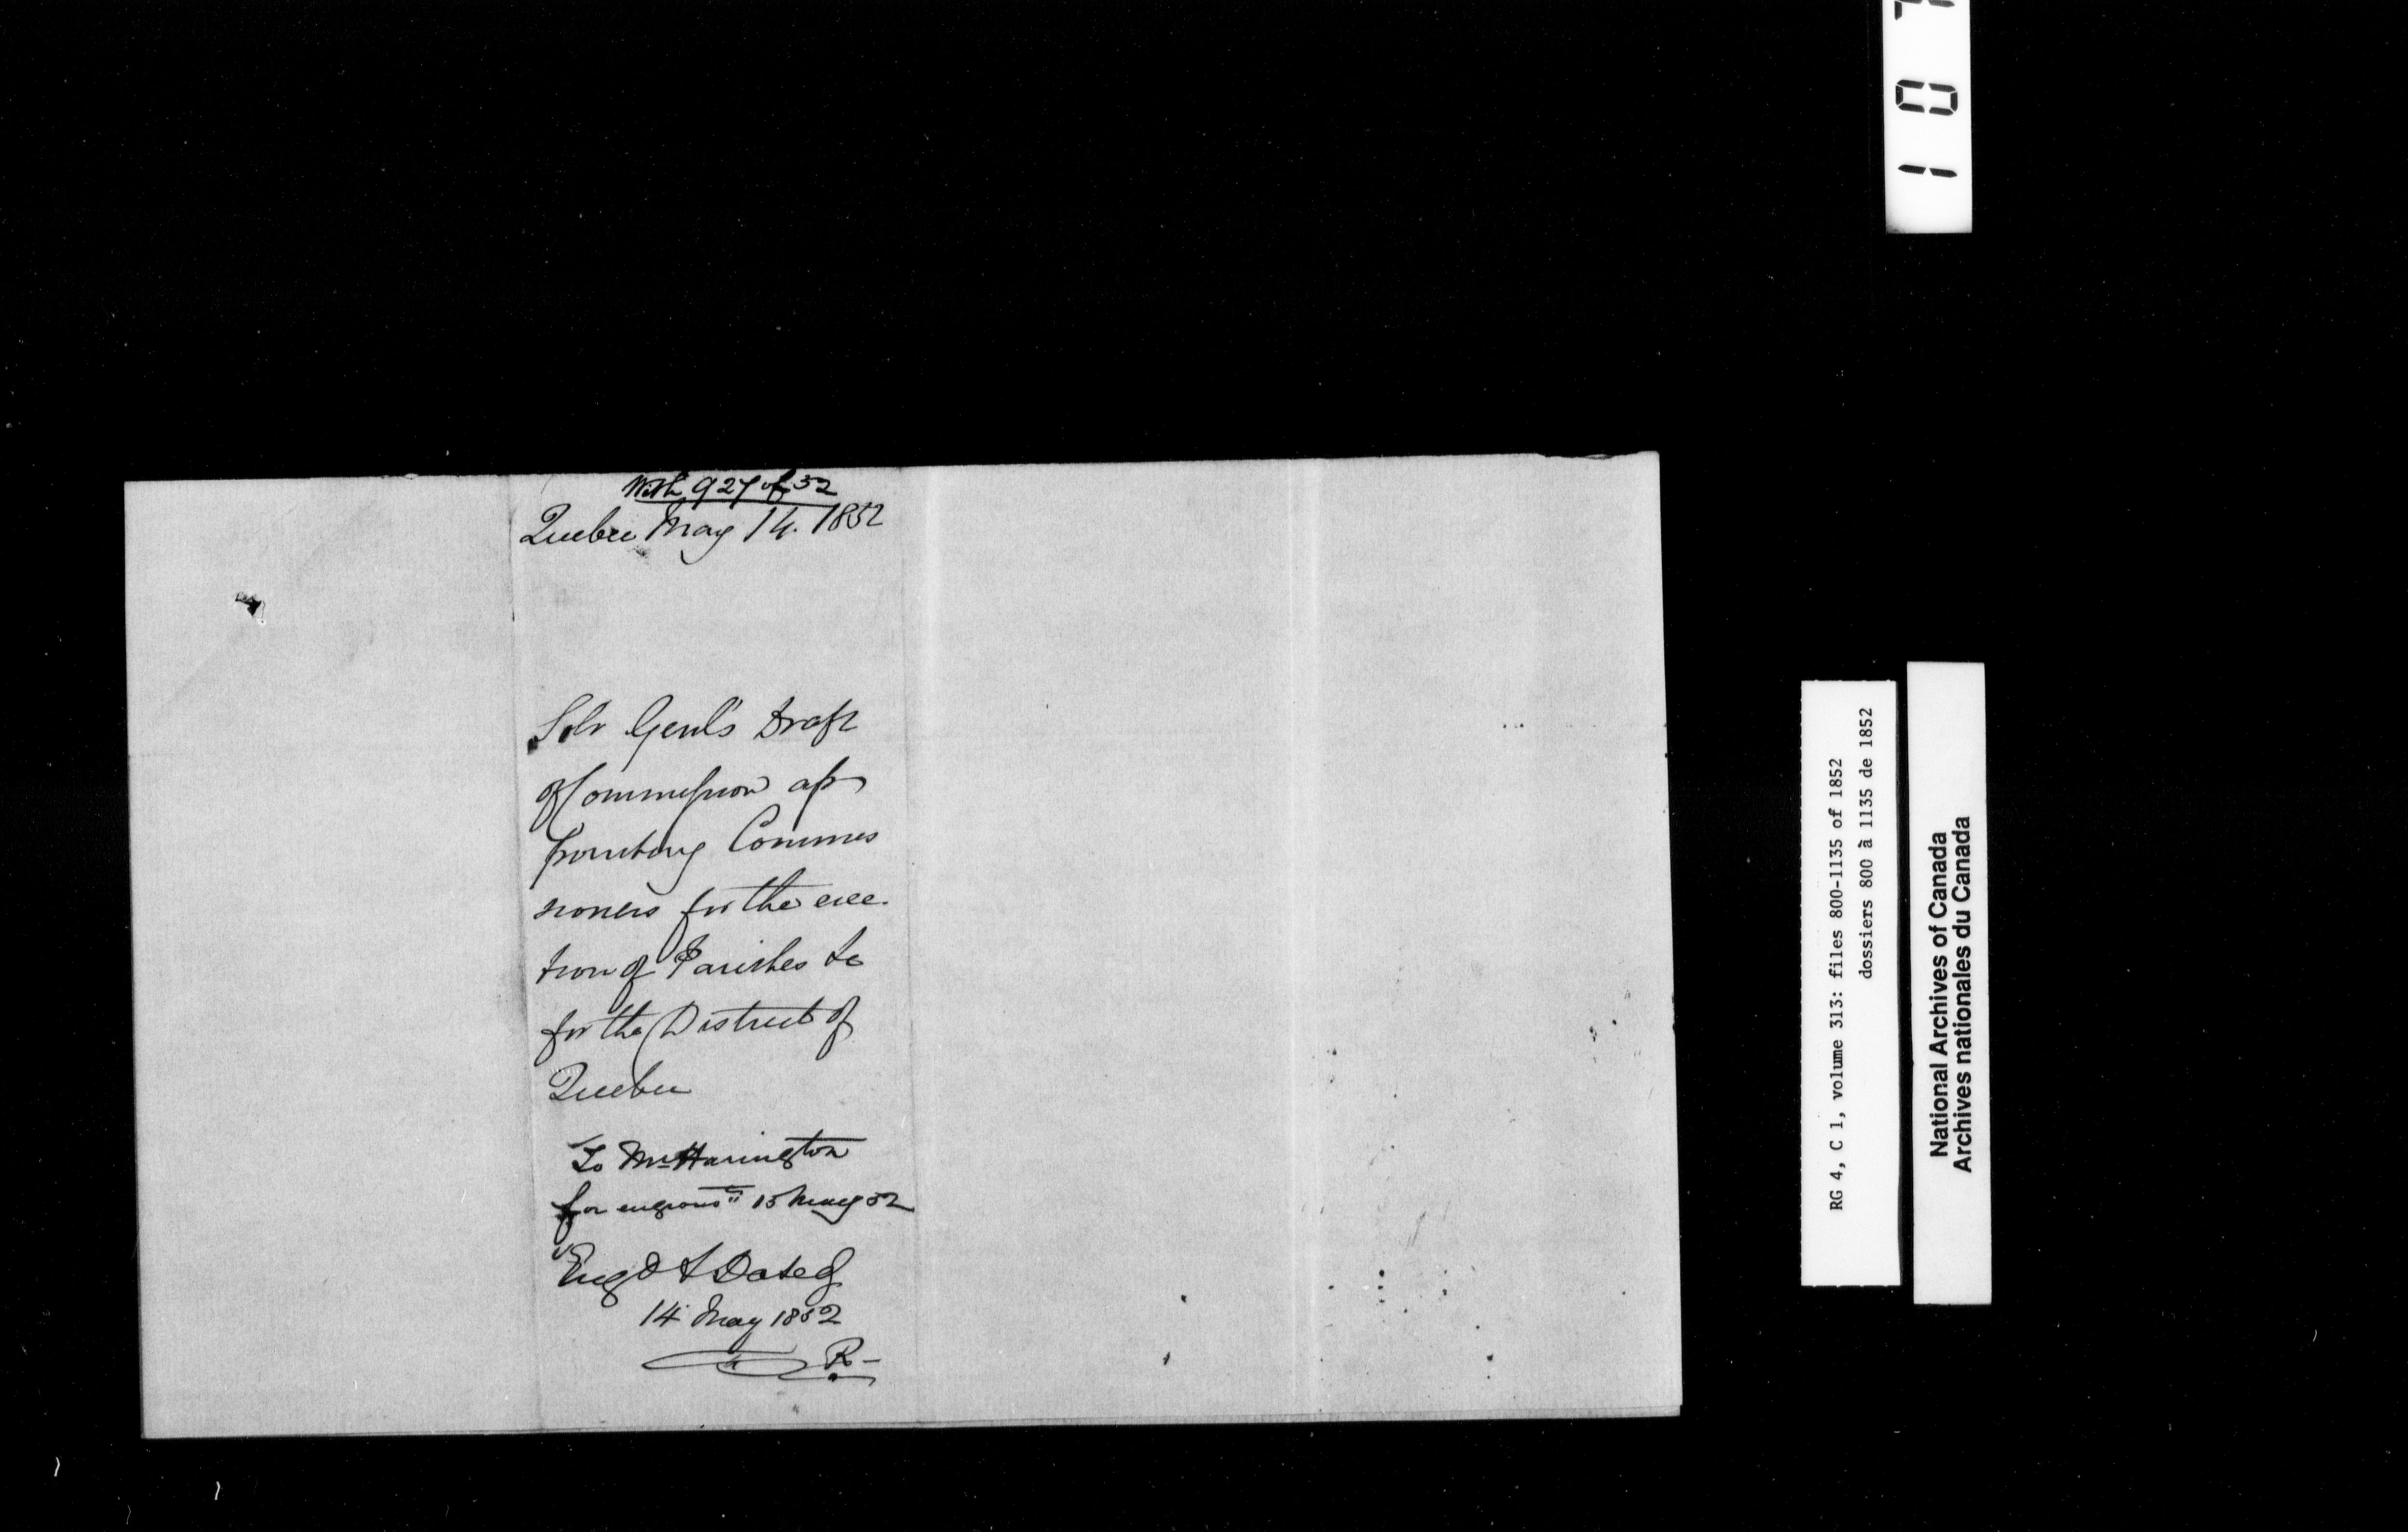 With 927 of 52
Quebec May 14. 1852
Solr Genl's Draft
of Commission ap
pointing Commis
sioners for the erec
tion of Parishes &c
for the District of
Quebec
To Mr Harington
for engrosst 15 May 52
Engd & Dated
14 May 1852
R-
RG 4, C 1, volume 313: files 800-1135 of 1852
dossiers 800 à 1135 de 1852
National Archives of Canada
Archives nationales du Canada
1 0